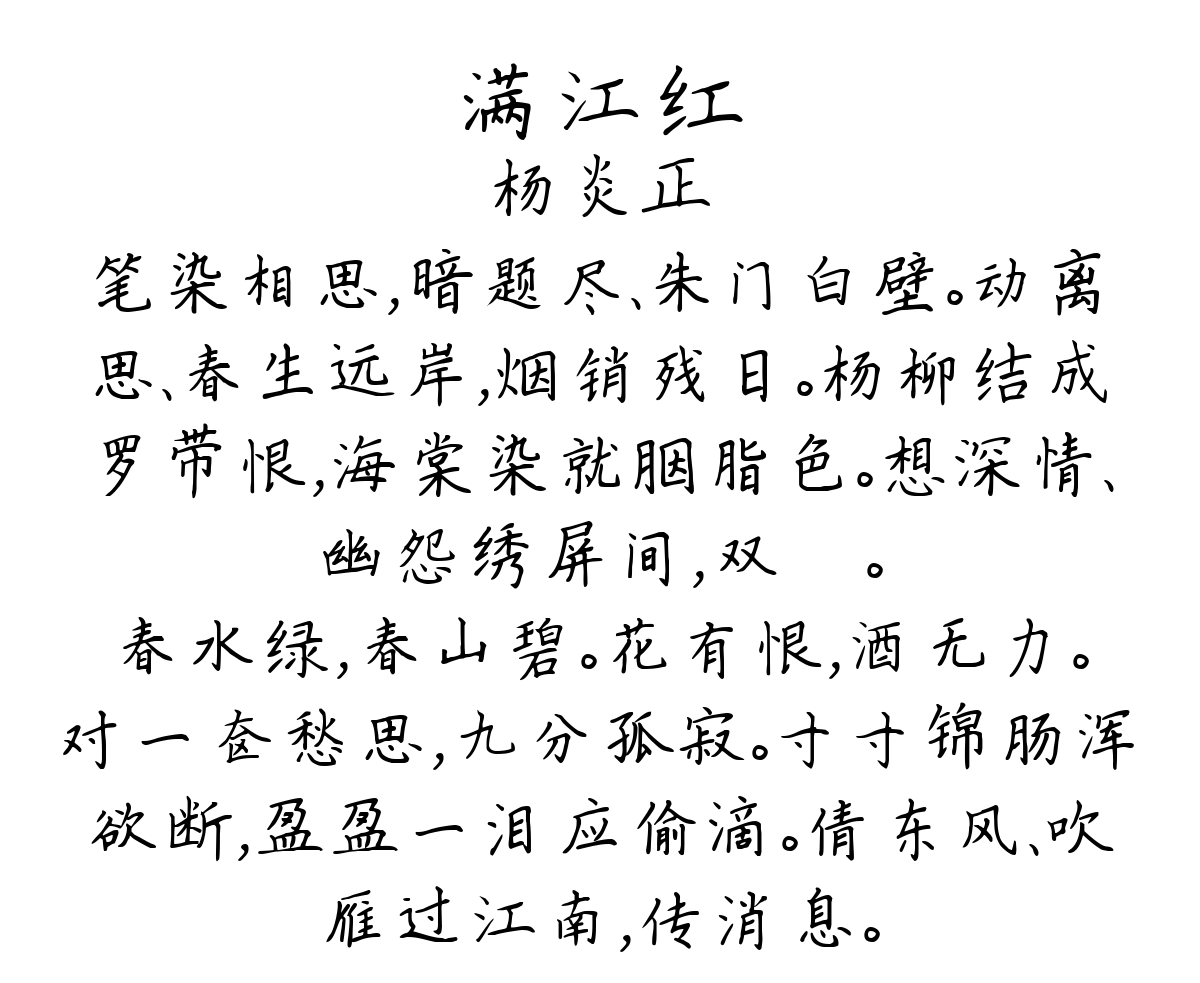 满江红
杨炎正
笔染相思,暗题尽、朱门白壁。动离
思、春生远岸,烟销残日。杨柳结成
罗带恨,海棠染就胭脂色。想深情、
幽怨绣屏间,双 。
春水绿,春山碧。花有恨,酒无力。
对一奁愁思,九分孤寂。寸寸锦肠浑
欲断,盈盈一泪应偷滴。倩东风、吹
雁过江南,传消息。